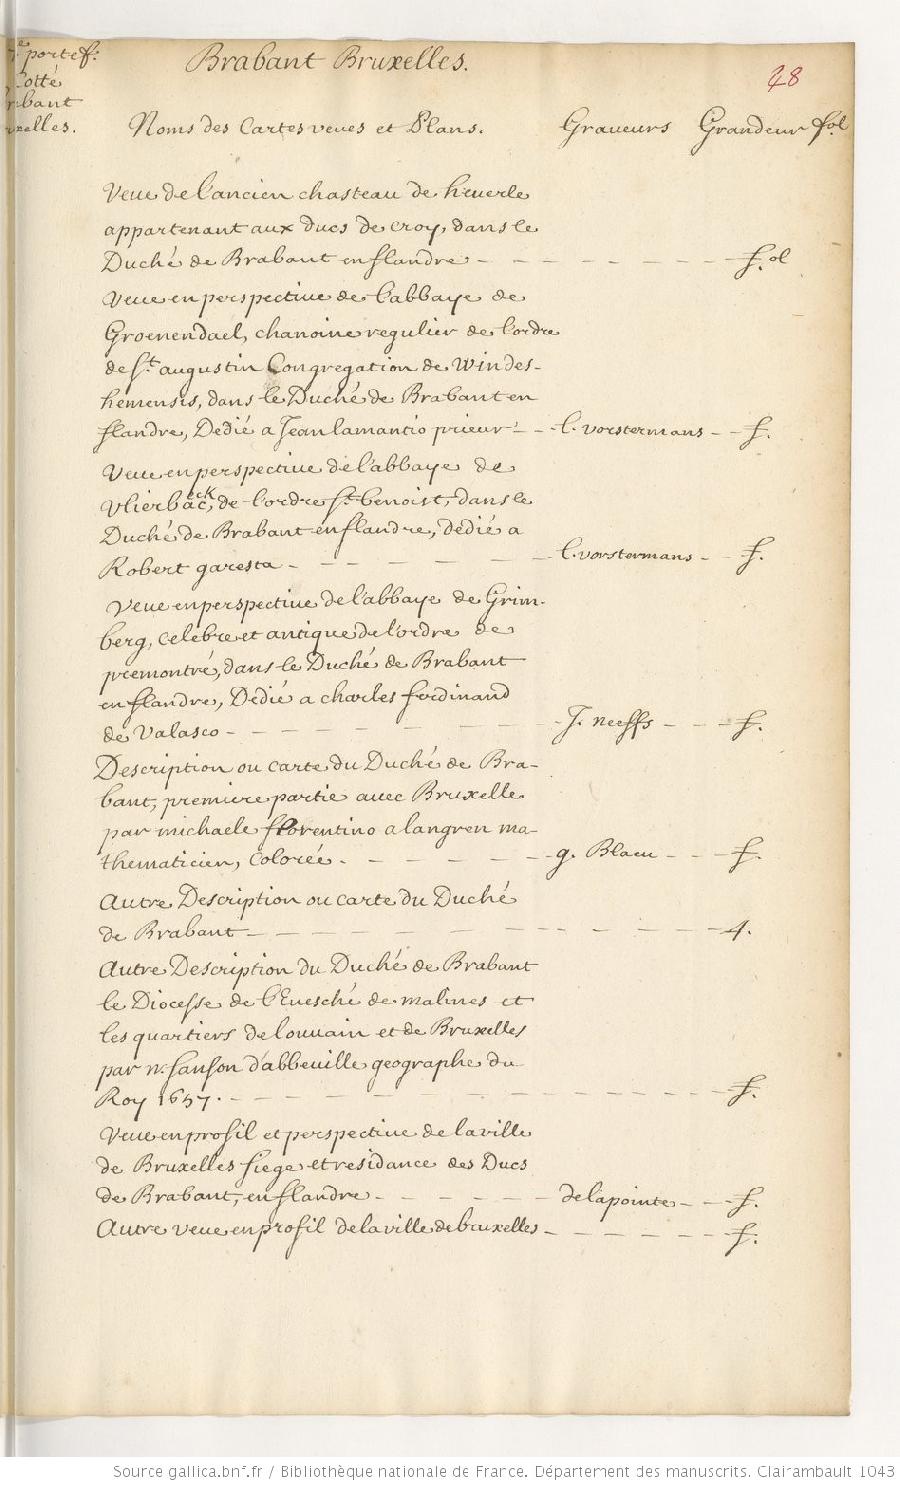 e portef.
Cotté
bant
xelles.
Brabant Bruxelles.
48
Noms des Cartes veues et Plans. Graveurs Grandeur fol
Veue de l'ancien chasteau de heuerle
appartenant aux ducs de croy, dans le
Duché de Brabant en flandre - - - - - - - - f.ol
Veue en perspective de l'abbaye de
Groenendael, chanoine regulier de l'ordre
de St. augustin Congregation de Windes-
hemensis, dans le Duché de Brabant en
flandre, Dedié a Jean lamantio prieur - - l. vorstermans - - f.
Veue en perspective de l'abbaye de
Vlierbaceck, de l'ordre St. benoist, dans le
Duché de Brabant en flandre, dédié a
Robert garesta - - - - - - - l. vorstermans - - f.
Veue en perspective de l'abbaye de Grim-
berg, celebre et antique de l'ordre de
premontré, dans le Duché de Brabant
en flandre, Dedié a charles ferdinand
de Valasco - - - - - - - - J. neeffs - - - f.
Description ou carte du Duché de Bra-
bant, premiere partie avec Bruxelle
par michaele florentino a langren ma-
thematicien, Colorée. - - - - - - g. Blaeu - - - f.
Autre Description ou carte du Duché
de Brabant - - - - - - - - - - - - 4.
Autre Description du Duché de Brabant
le Diocesse de l'Evesché de malines et
les quartiers de louvain et de Bruxelles
par n. sanson d'abbeville geographe du
Roy 1657. - - - - - - - - - - - - f.
Veue en profil et perspective de la ville
de Bruxelles siege et residance des Ducs
de Brabant, en flandre - - - - - delapointe - - f.
Autre veue en profil de la ville de bruxelles - - - - - f.
Source gallica.bnf.fr / Bibliothèque nationale de France. Département des manuscrits. Clairambault 1043